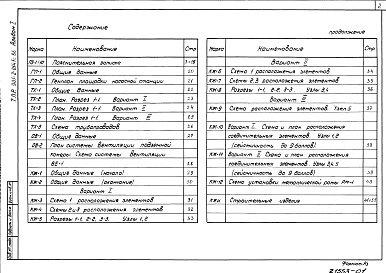 Содержание
Марка Наименование Стр
Пояснительная записка 3-19
ГП-1 Общие данные 20
ГП-2 Генплан площадки насосной станции 21
ТХ-1 Общие данные 22
ТХ-2 План. Разрез 1-1 Вариант I 23
ТХ-3 План. Разрез 1-1 Вариант II 24
ТХ-4 План. Разрез 1-1 Вариант III 25
ТХ-5 Схема трубопроводов 26
ОВ-1 Общие данные 27
ОВ-2 План системы вентиляции подземной
камеры. Схема системы вентиляции
ВЕ-1 28
КЖ-1 Общие данные (начало) 29
КЖ-2 Общие данные (окончание) 30
Вариант I
КЖ-3 Схема 1 расположения элементов 31
КЖ-4 Схемы 2 и 3 расположения элементов 32
КЖ-5 Разрезы 1-1, 2-2, 3-3. Узлы 1,2 33
продолжение
Марка Наименование Стр
Вариант II
КЖ-6 Схема 1 расположения элементов 34
КЖ-7 Схемы 2,3 расположения элементов 35
КЖ-8 Разрезы 1-1, 2-2, 3-3. Узлы 3,4 36
Вариант III
КЖ-9 Схема расположения элементов. Узел 5 37
КЖ-10 Вариант I. Схема и план расположения
соединительных элементов. Узлы 1,2
(сейсмичность до 9 баллов) 38
КЖ-11 Вариант II. Схема и план расположения
соединительных элементов. Узлы 3,4,5
(сейсмичность до 9 баллов) 39
КЖ-12 Схема установки монолитной рамы РМ-1 40
КЖИ Строительные изделия
Формат А3
21553-01